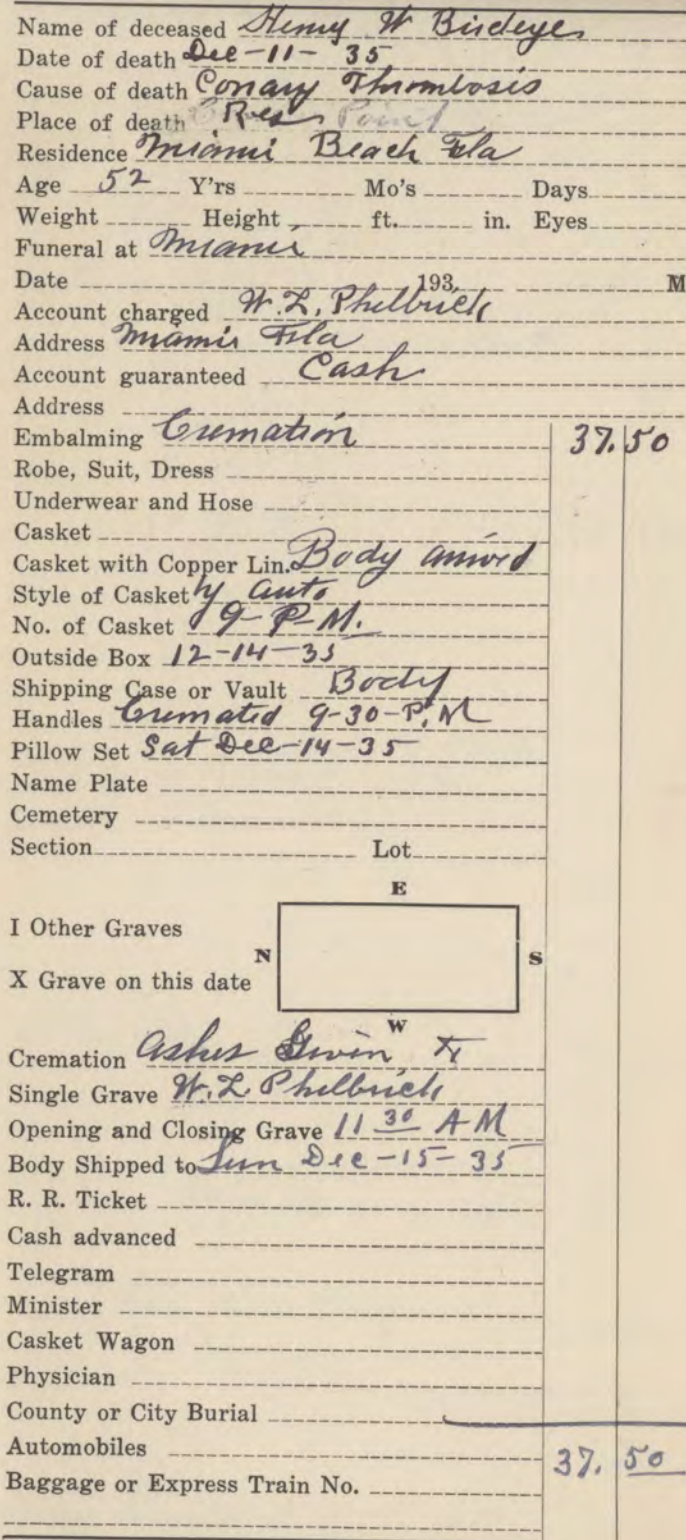 Name of deceased Henry W Birdeye
Date of death Dec-11- 35
Cause of death Conary Thrombosis
Place of death Res Point
Residence Miami Beach Fla
Age 52 Y'rs Mo's Days
Weight Height ft. in. Eyes
Funeral at Miami
Date 193 M
Account charged W. L. Philbrick
Address Miami Fla
Account guaranteed Cash
Address
Embalming Cremation 37.50
Robe, Suit, Dress
Underwear and Hose
Casket
Casket with Copper Lin. Body arrived
Style of Casket by auto
No. of Casket 9-P-M.
Outside Box 12-14-35
Shipping Case or Vault Body
Handles Cremated 9-30-P.M
Pillow Set Sat Dec-14-35
Name Plate
Cemetery
Section Lot
E
I Other Graves
N S
X Grave on this date
W
Cremation Ashes Given to
Single Grave W. L Philbrick
Opening and Closing Grave 11 30 A M
Body Shipped to Sun Dec-15-35
R. R. Ticket
Cash advanced
Telegram
Minister
Casket Wagon
Physician
County or City Burial
Automobiles 37. 50
Baggage or Express Train No.